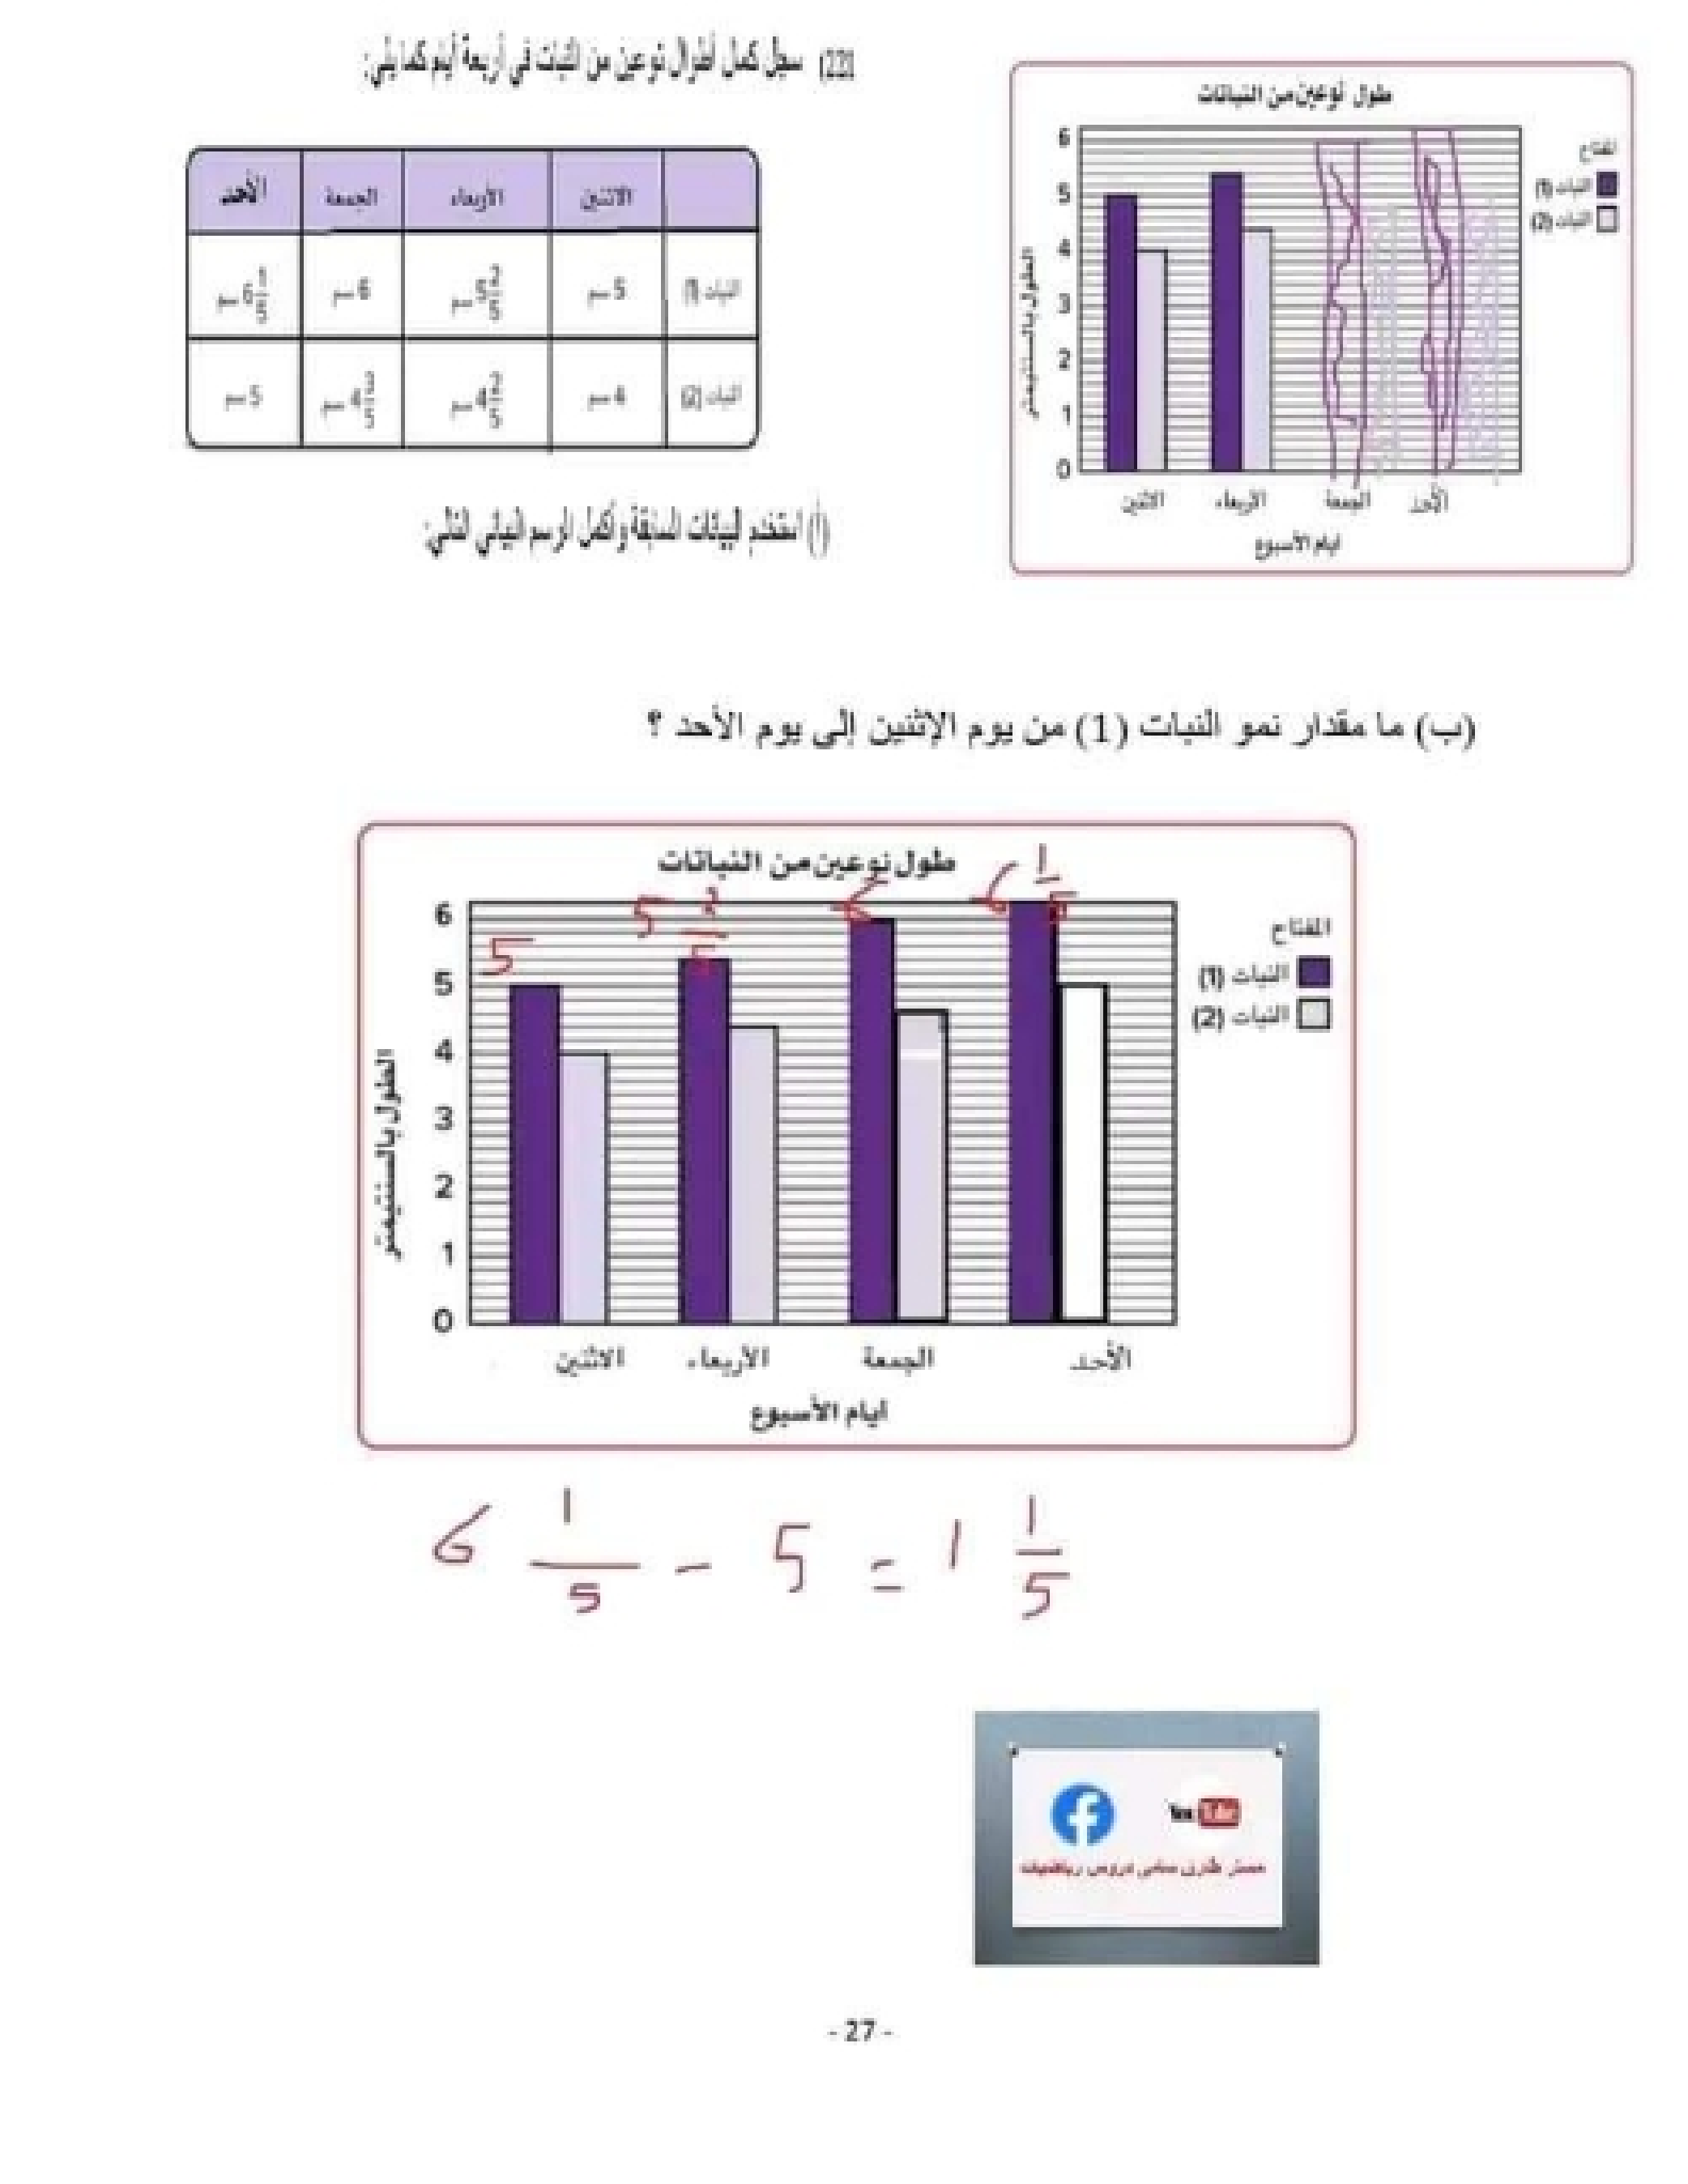 22) سجل كمال أطوال نوعين من النبات في أربعة أيام كما يلي:
الاثنين الأربعاء الجمعة الأحد
النبات (1) 5 سم 5 2/5 سم 6 سم 6 1/5 سم
النبات (2) 4 سم 4 2/5 سم 4 3/5 سم 5 سم
(أ) استخدم البيانات السابقة وأكمل الرسم البياني التالي:
طول نوعين من النباتات
المفتاح
النبات (1)
النبات (2)
الطول بالسنتيمتر
6
5
4
3
2
1
0
الاثنين الأربعاء الجمعة الأحد
ايام الأسبوع
(ب) ما مقدار نمو النبات (1) من يوم الإثنين إلى يوم الأحد ؟
طول نوعين من النباتات
5 5 2/5 6 6 1/5
المفتاح
النبات (1)
النبات (2)
الطول بالسنتيمتر
6
5
4
3
2
1
0
الاثنين الأربعاء الجمعة الأحد
ايام الأسبوع
6 1/5 - 5 = 1 1/5
f YouTube
مستر طارق سامى دروس رياضيات
- 27 -